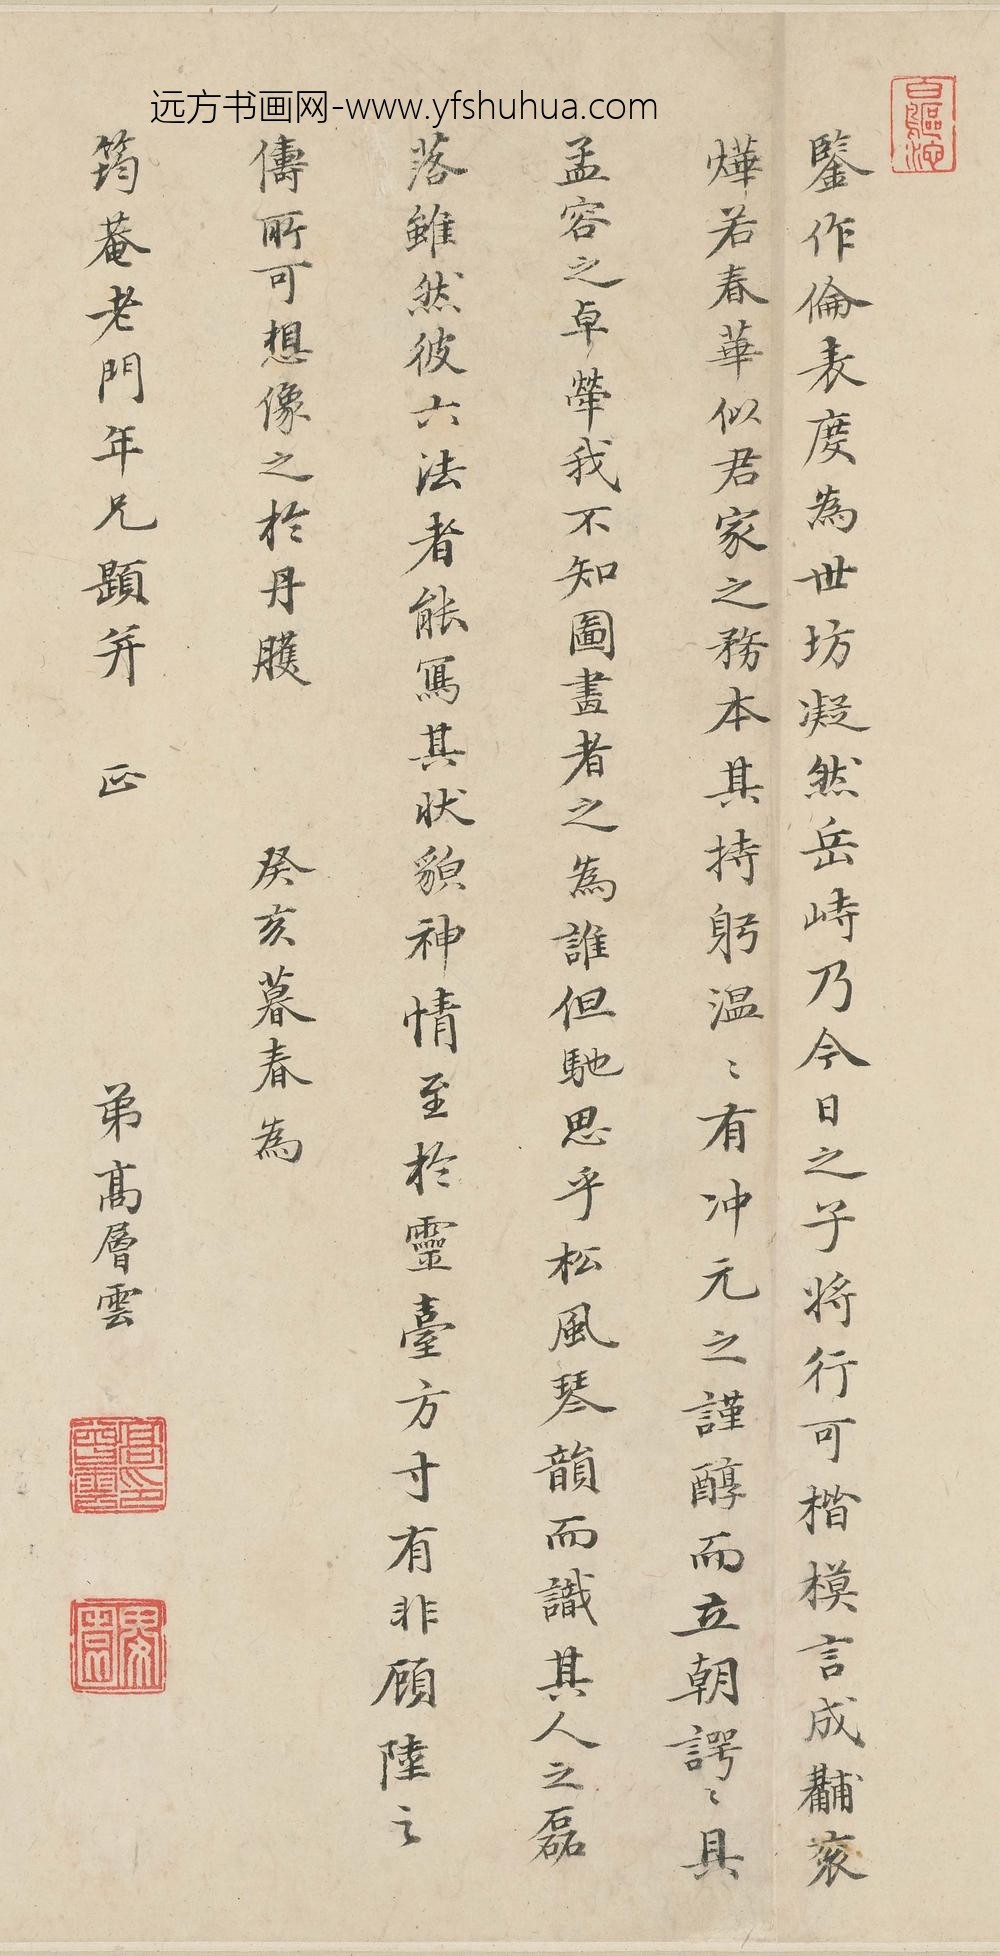 远方书画网-www.yfshuhua.com
鑒作倫表度為世坊凝然岳峙乃今日之子將行可楷模言成黼衮
燁若春華似君家之務本其持躬温〻有冲元之謹醇而立朝諤〻具
孟容之卓犖我不知圖畫者之為誰但馳思乎松風琴韻而識其人之磊
落雖然彼六法者能寫其狀貌神情至於靈臺方寸有非顧陸之
儔所可想像之於丹雘 癸亥暮春為
筠菴老門年兄題并 正 弟高層雲